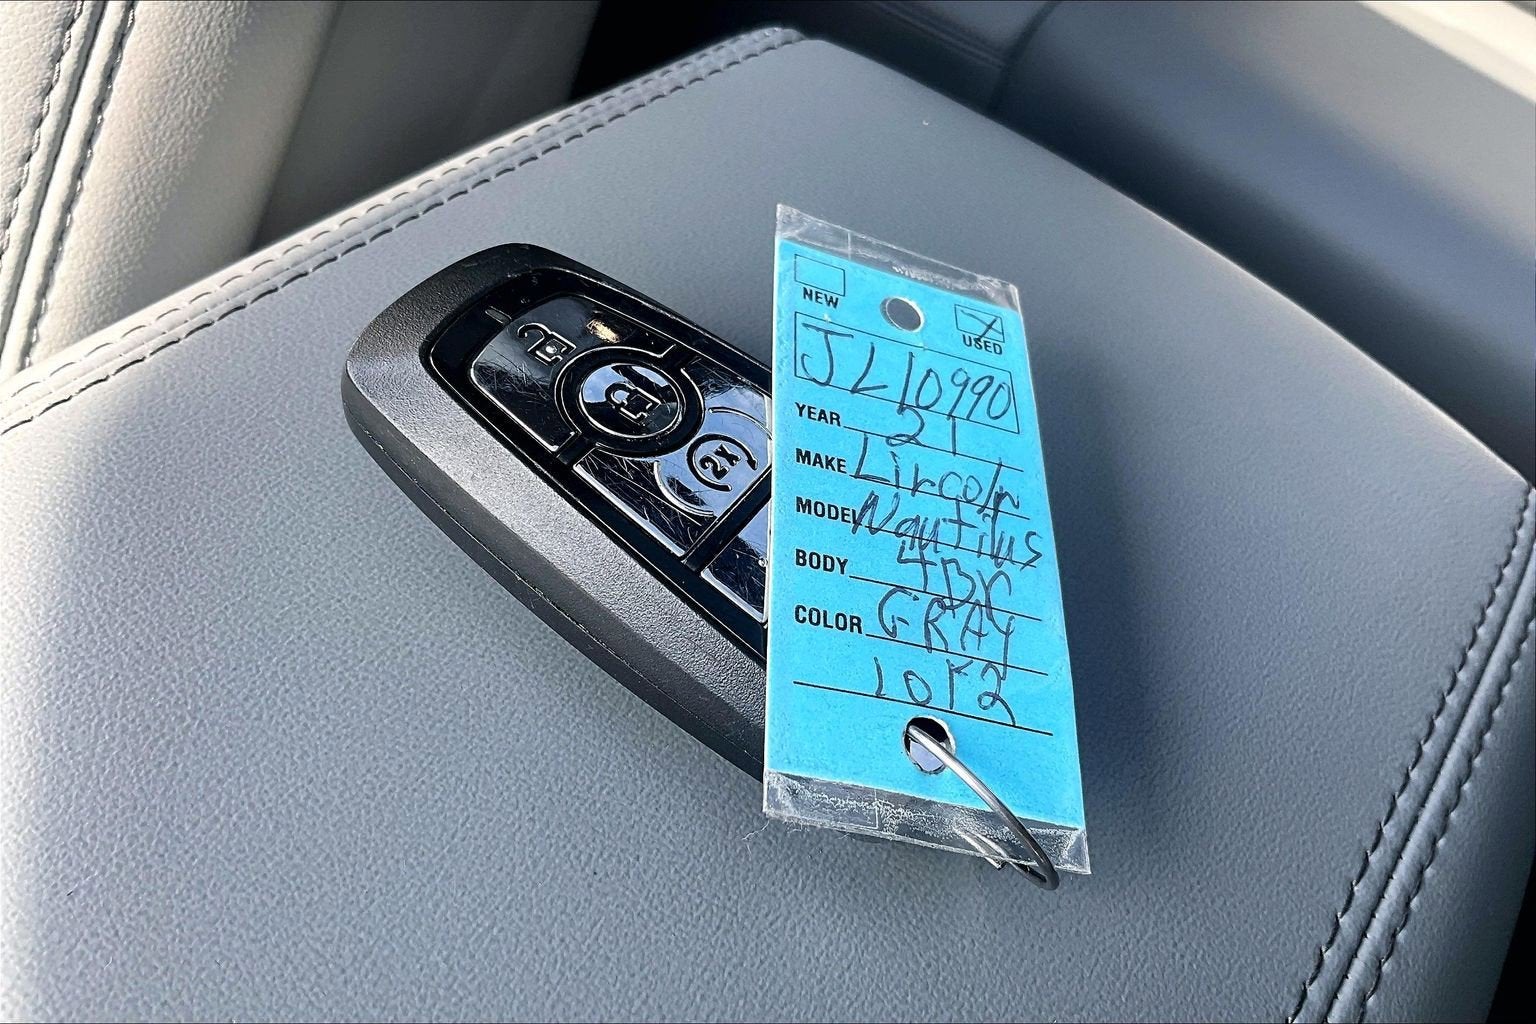 NEW
USED
JL10990
YEAR 21
MAKE Lincoln
MODEL Nautilus
BODY 4DR
COLOR GRAY
LOT2
2x